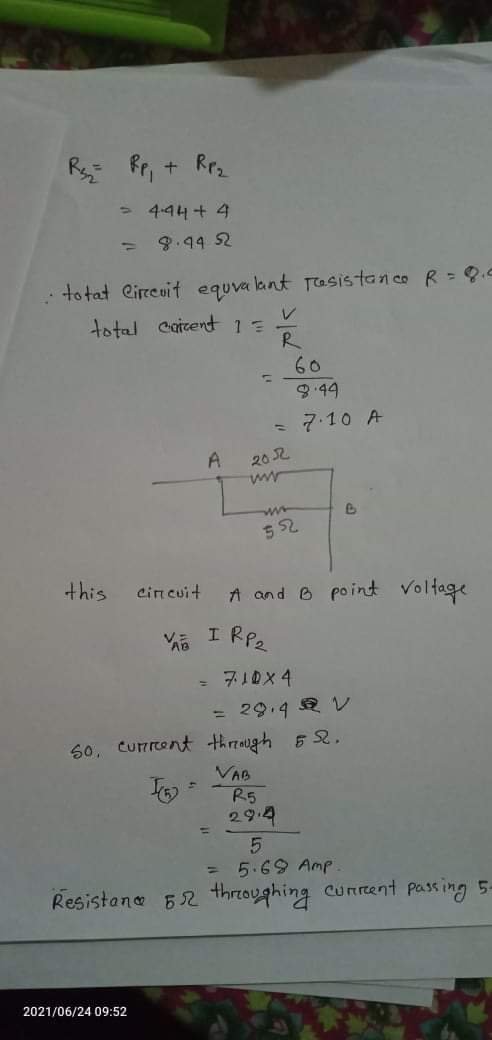 Rs₂ = Rp₁ + Rp₂
= 4.44 + 4
= 8.44 Ω
∴ totat Circuit equvalant resistance R = 8.4
total current I = V/R
= 60/8.44
= 7.10 A
A 20Ω
B
5Ω
this circuit A and B point Voltage
V_AB = I Rp₂
= 7.10 × 4
= 28.4 V
So, current through 5Ω.
I(5) = V_AB/R5
= 28.4/5
= 5.68 Amp.
Resistance 5Ω throughing current passing 5.
2021/06/24 09:52